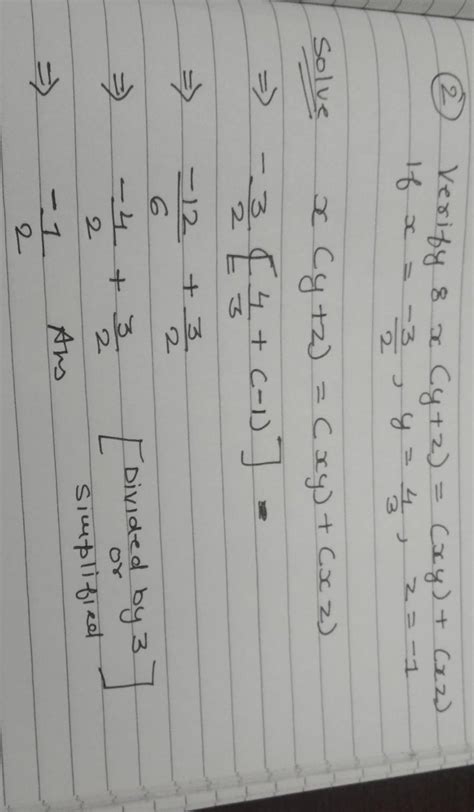 ② Verify : x (y+z) = (xy) + (xz)
If x = -3/2, y = 4/3, z = -1
Solve x (y+z) = (xy) + (xz)
⇒ -3/2 [4/3 + (-1)] =
⇒ -12/6 + 3/2
⇒ -4/2 + 3/2 [Divided by 3 or simplified]
⇒ -1/2 Ans